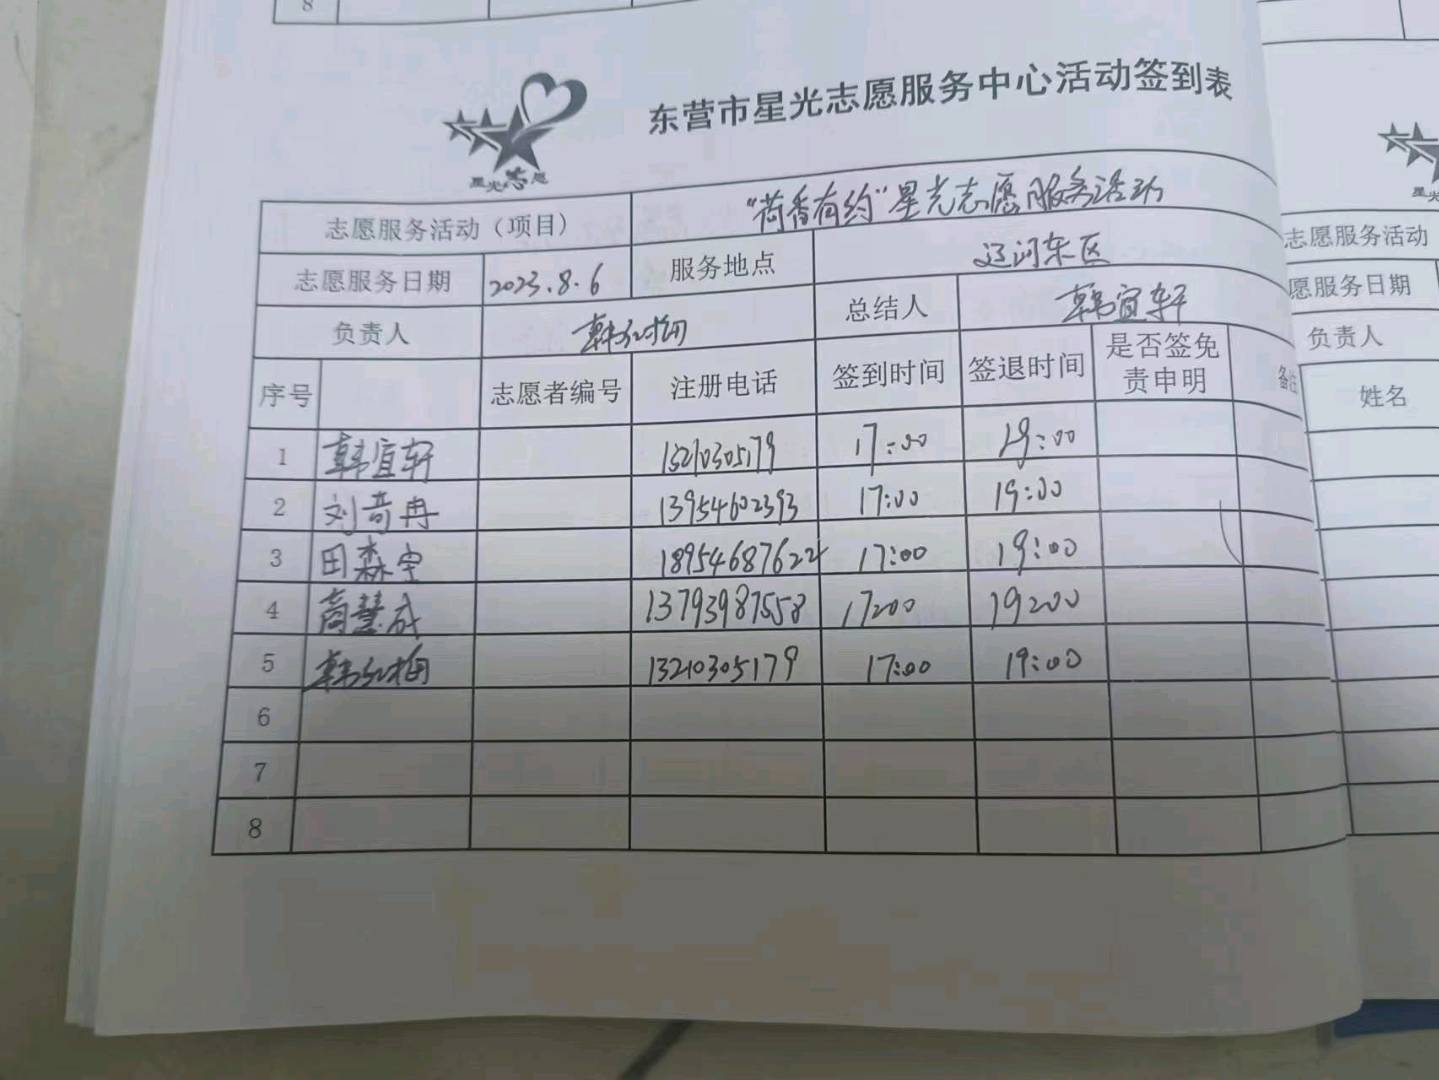 8
东营市星光志愿服务中心活动签到表
星光志愿
志愿服务活动（项目） “荷香有约”星光志愿服务活动
志愿服务日期 2023.8.6 服务地点 辽河东区
负责人 韩红梅 总结人 韩宜轩
序号 志愿者编号 注册电话 签到时间 签退时间 是否签免责申明 备注
1 韩宜轩 13210305179 17:00 19:00
2 刘音冉 13954602393 17:00 19:00
3 田森宇 18954687622 17:00 19:00
4 商慧成 13793987558 17:00 19:00
5 韩红梅 13210305179 17:00 19:00
6
7
8
星光
志愿服务活动
愿服务日期
负责人
姓名